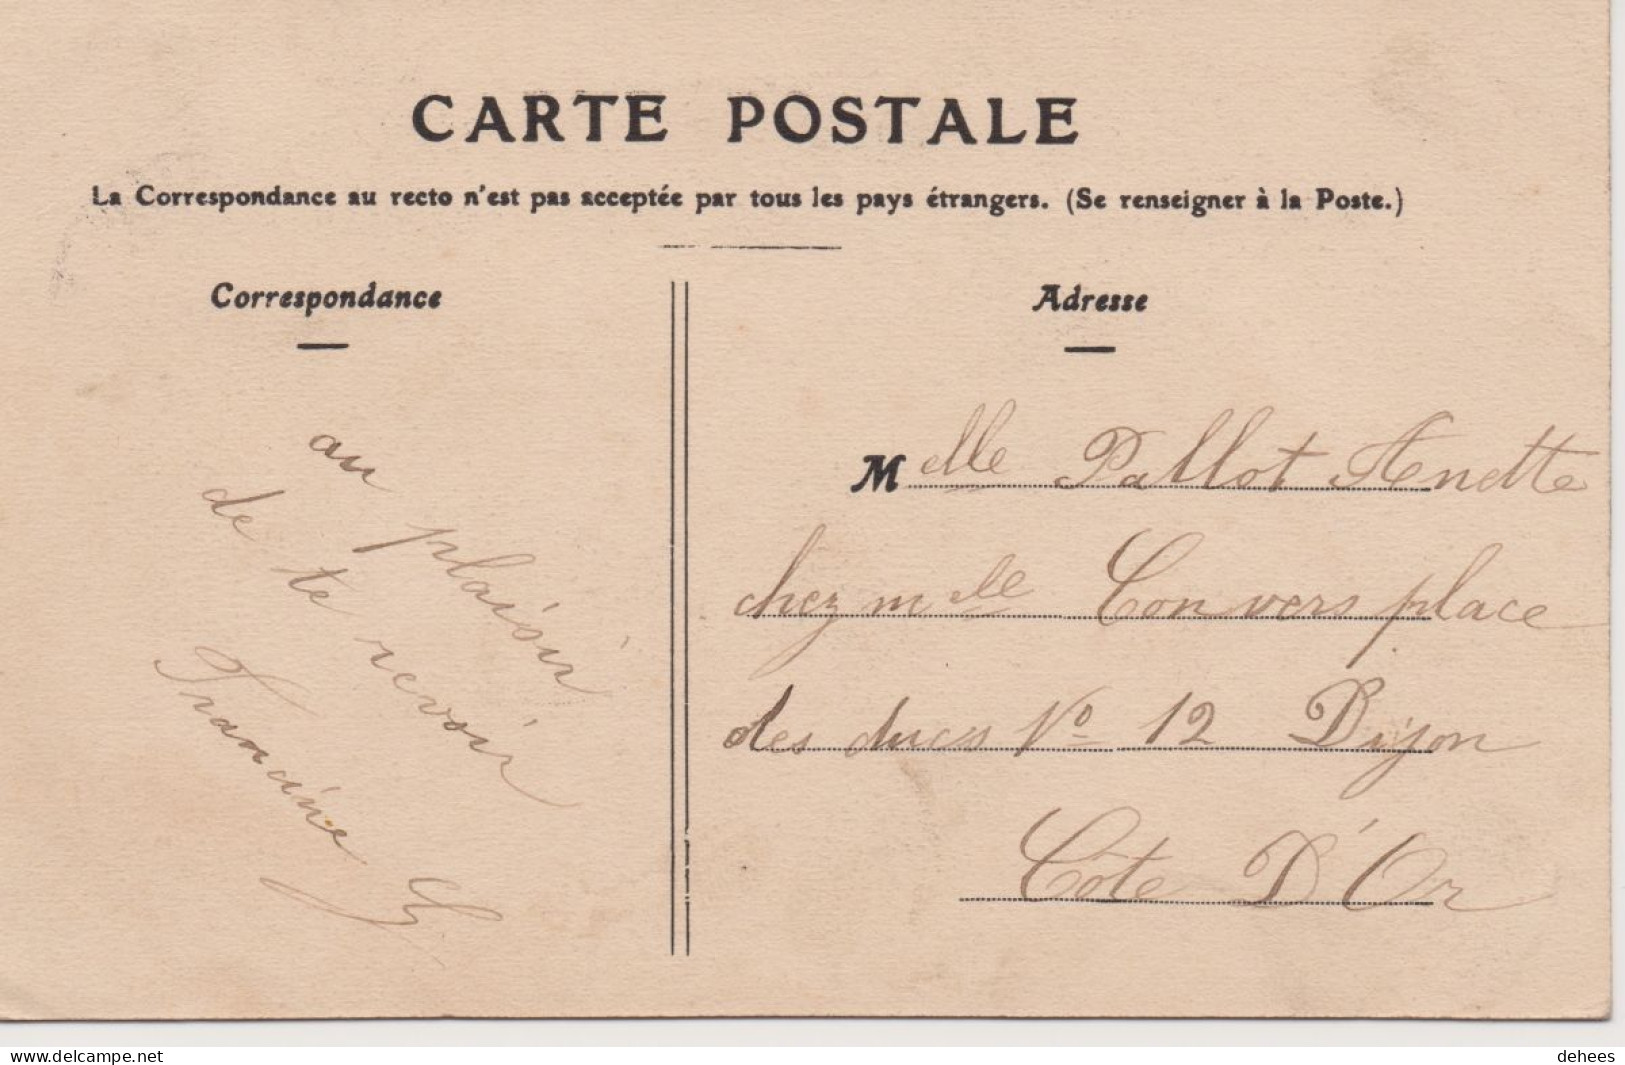 CARTE POSTALE
La Correspondance au recto n'est pas acceptée par tous les pays étrangers. (Se renseigner à la Poste.)
Correspondance
au plaisir
de te revoir
Francine
Adresse
Melle Pallot Anette
chez melle Convers place
des ducs No 12 Dijon
Côte D'Or
www.delcampe.net
dehees